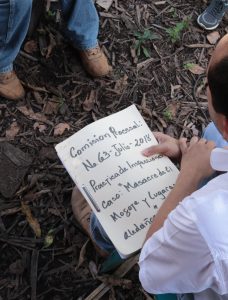 Comision Procesal:
No 63-Julio-2018
Practica de Inspeccion
Caso: "Masacre de El
Mozote y lugares
aledaños"